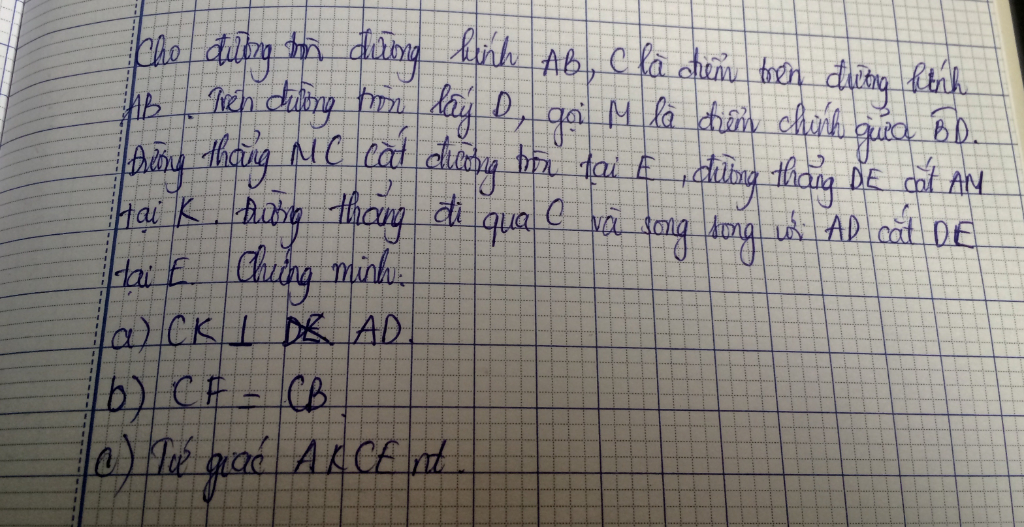 Cho đường tròn đường kính AB, C là điểm trên đường kính
AB. Trên đường tròn lấy D, gọi M là điểm chính giữa BD.
Đường thẳng MC cắt đường tròn tại E, đường thẳng DE cắt AM
tại K. Đường thẳng đi qua C và song song với AD cắt DE
tại F. Chứng minh:
a) CK ⊥ AD.
b) CF = CB.
c) Tứ giác AKCE nt.